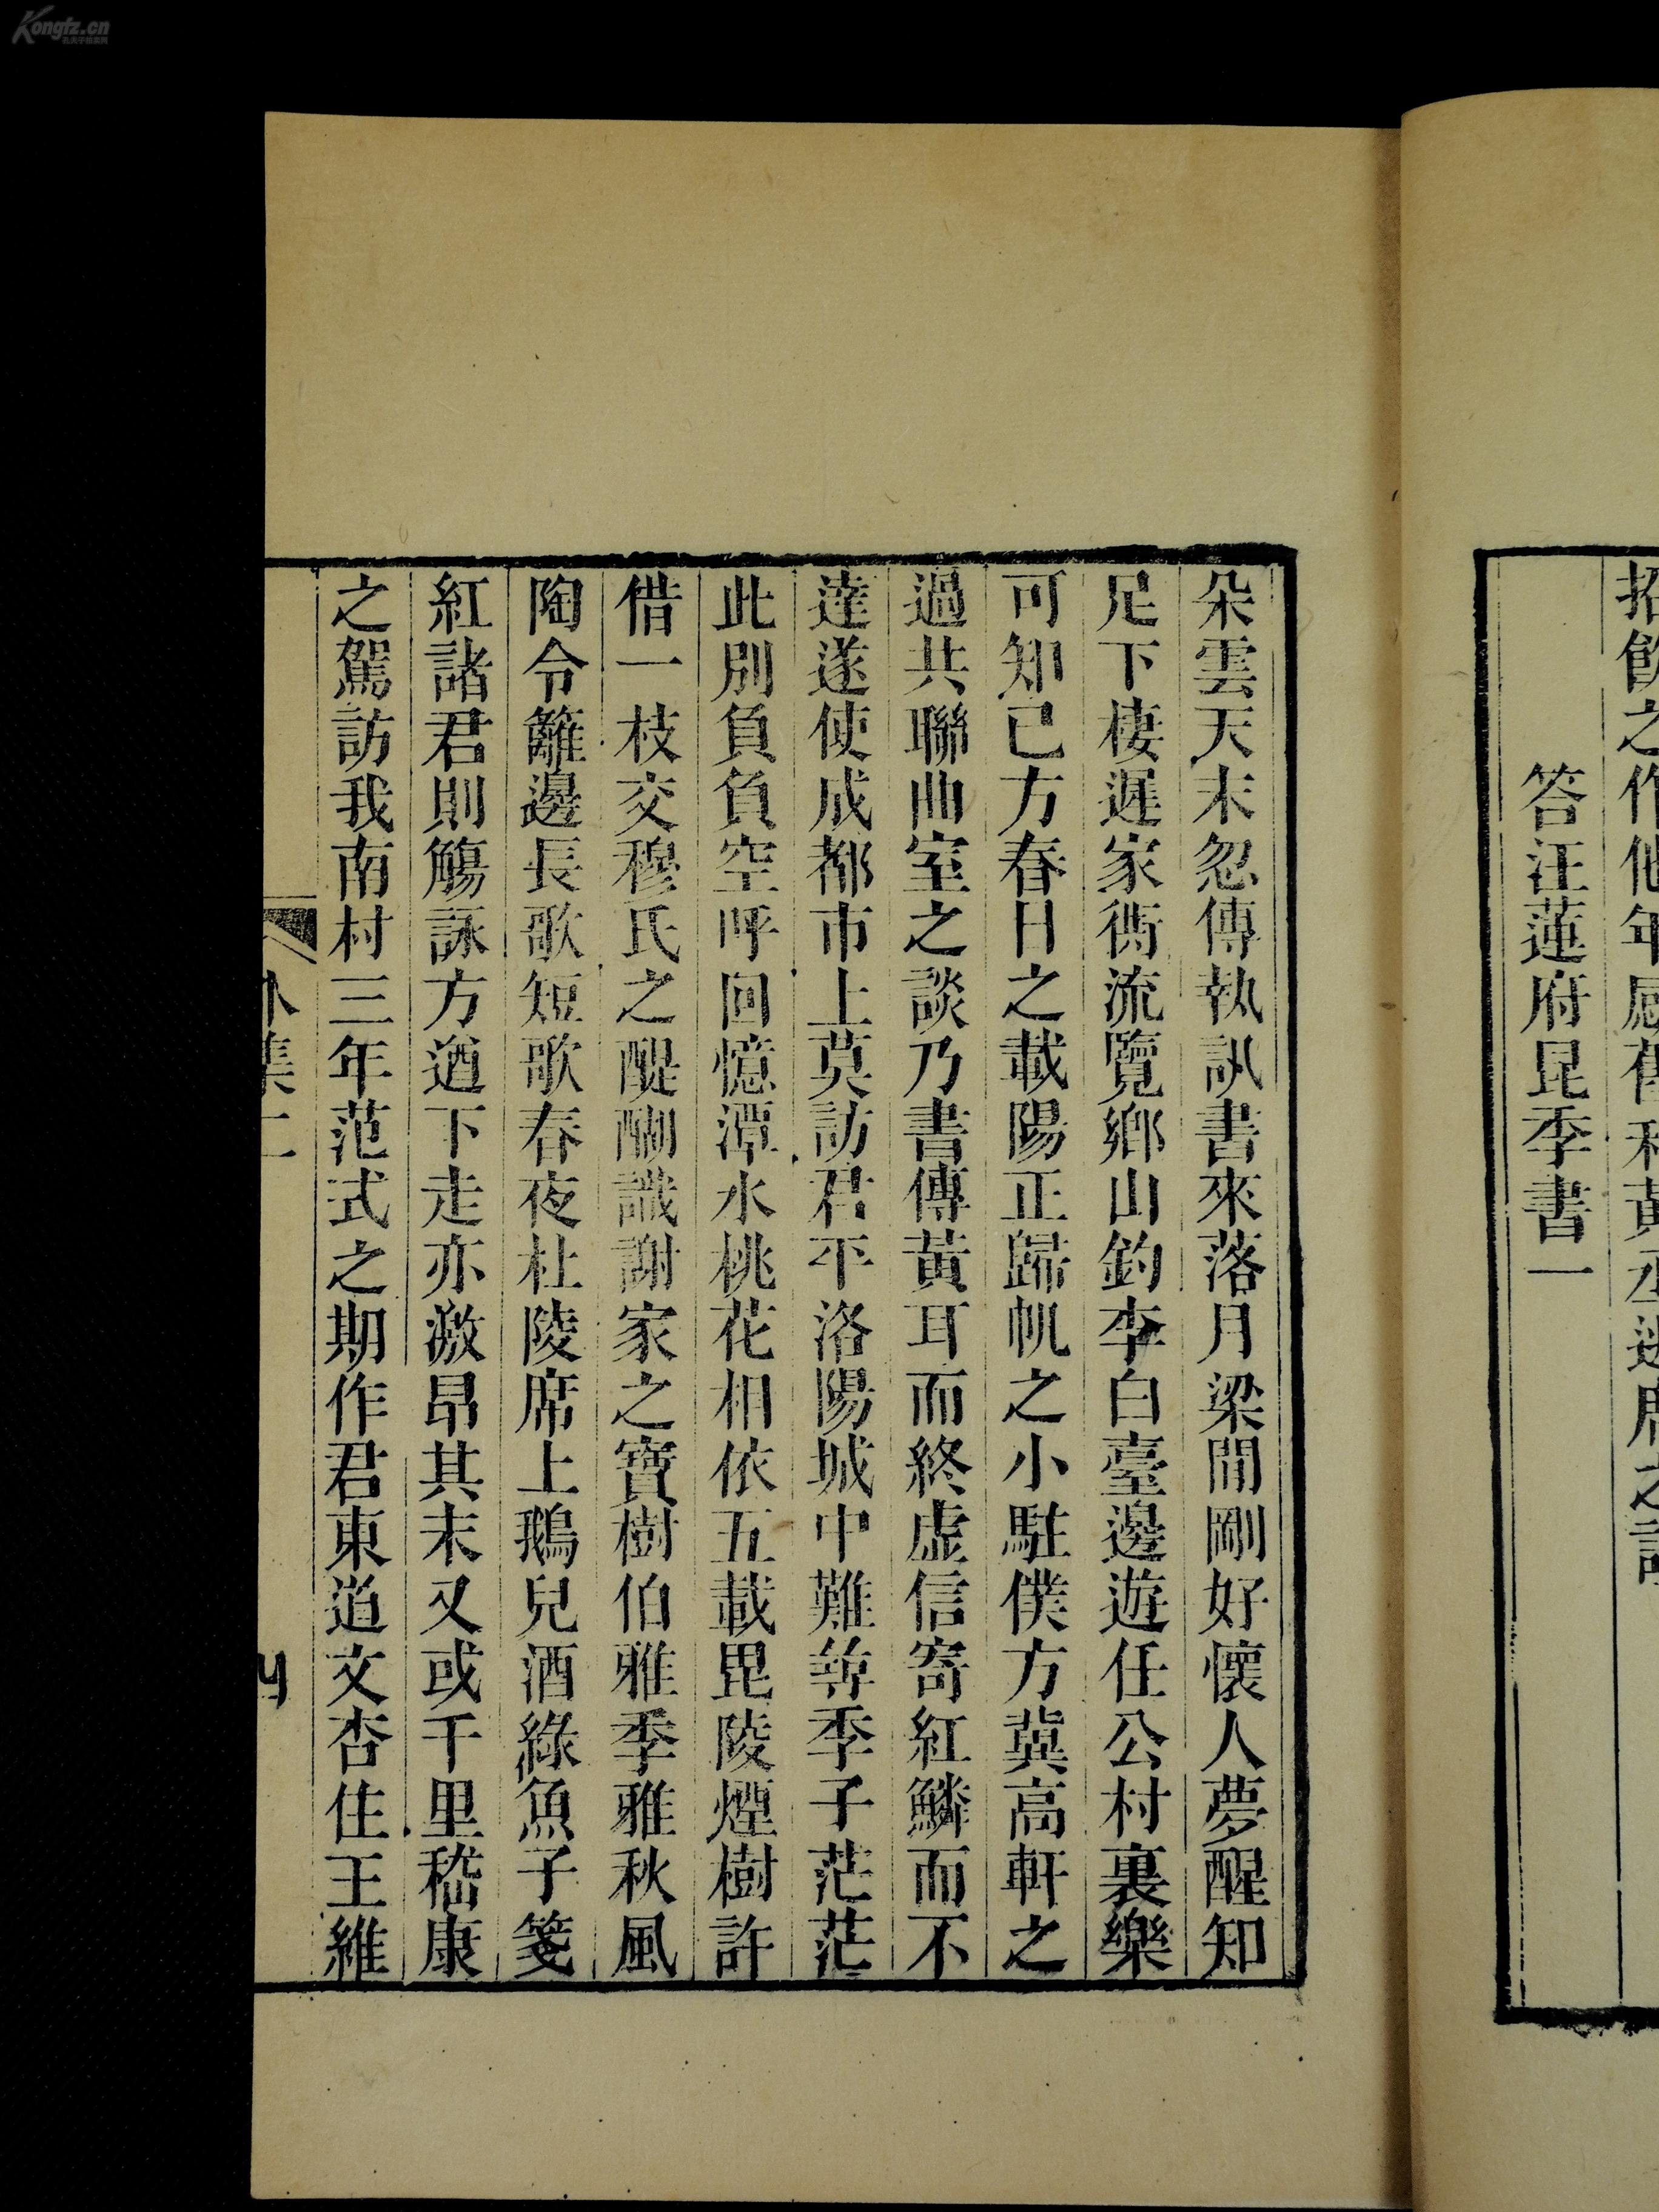 Kongfz.cn
招飲之作他年感舊和黃丞送席之詩
答汪蓮府昆季書一
朵雲天末忽傳執訊書來落月梁間剛好懷人夢醒知
足下棲遲家衖流覽鄉山釣李白臺邊遊任公村裏樂
可知已方春日之載陽正歸帆之小駐僕方冀高軒之
過共聯曲室之談乃書傳黃耳而終虛信寄紅鱗而不
達遂使成都市上莫訪君平洛陽城中難覓季子茫茫
此別負負空呼回憶潭水桃花相依五載毘陵煙樹許
借一枝交穆氏之醍醐識謝家之寶樹伯雅季雅秋風
陶令籬邊長歌短歌春夜杜陵席上鵝兒酒綠魚子箋
紅諸君則觴詠方遒下走亦激昂其末又或千里嵇康
之駕訪我南村三年范式之期作君東道文杏住王維
外集二